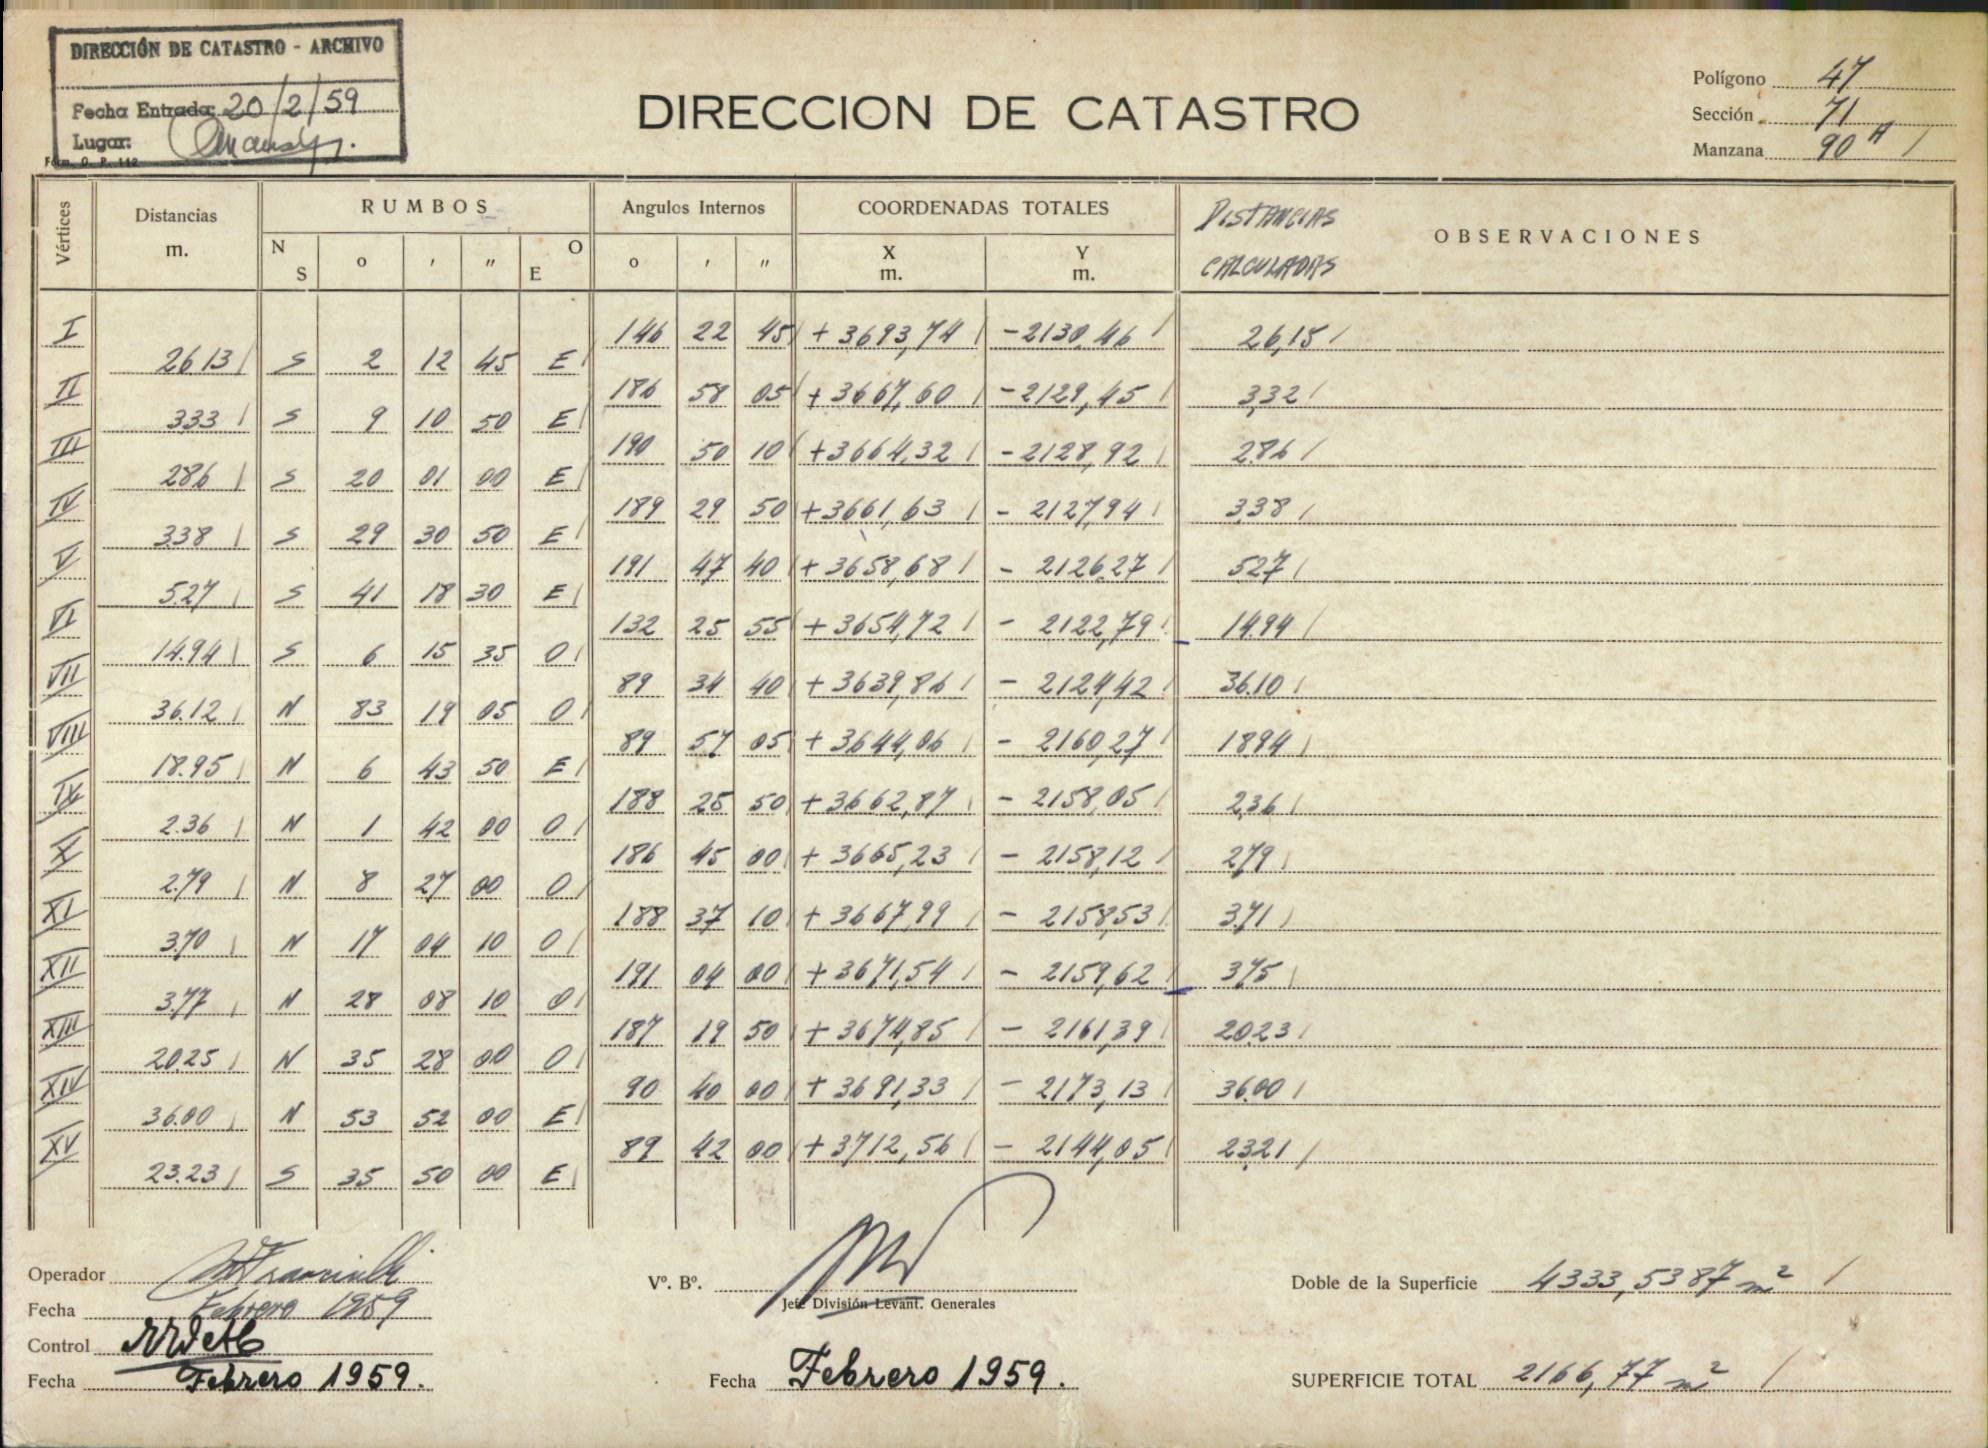 DIRECCIÓN DE CATASTRO - ARCHIVO
Fecha Entrada: 20/2/59
Lugar:
Form. O. P. 112
DIRECCION DE CATASTRO
Polígono 47
Sección 71
Manzana 90 A /
Vértices Distancias m. RUMBOS N S o ' " O E Angulos Internos o ' " COORDENADAS TOTALES X m. Y m. DISTANCIAS CALCULADAS OBSERVACIONES
I 146 22 45 + 3693,74 - 2130,46 26,15
26.13 S 2 12 45 E
II 186 58 05 + 3667,60 - 2129,45 3,32
3.33 S 9 10 50 E
III 190 50 10 + 3664,32 - 2128,92 2.86
2.86 S 20 01 00 E
IV 189 29 50 + 3661,63 - 2127,94 3.38
3.38 S 29 30 50 E
V 191 47 40 + 3658,68 - 2126,27 5.27
5.27 S 41 18 30 E
VI 132 25 55 + 3654,72 - 2122,79 14.94
14.94 S 6 15 35 O
VII 89 34 40 + 3639,86 - 2124,42 36.10
36.12 N 83 19 05 O
VIII 89 57 05 + 3644,06 - 2160,27 18.94
18.95 N 6 43 50 E
IX 188 25 50 + 3662,87 - 2158,05 2,36
2.36 N 1 42 00 O
X 186 45 00 + 3665,23 - 2158,12 2,79
2.79 N 8 27 00 O
XI 188 37 10 + 3667,99 - 2158,53 3.71
3.70 N 17 04 10 O
XII 191 04 00 + 3671,54 - 2159,62 3,75
3.77 N 28 08 10 O
XIII 187 19 50 + 3674,85 - 2161,39 20.23
20.25 N 35 28 00 O
XIV 90 40 00 + 3691,33 - 2173,13 36.00
36.00 N 53 52 00 E
XV 89 42 00 + 3712,56 - 2144,05 23.21
23.23 S 35 50 00 E
Operador
Fecha Febrero 1959
Control
Fecha Febrero 1959.
Vº. Bº.
Jefe División Levant. Generales
Fecha Febrero 1959.
Doble de la Superficie 4333,5387 m²
SUPERFICIE TOTAL 2166,77 m²